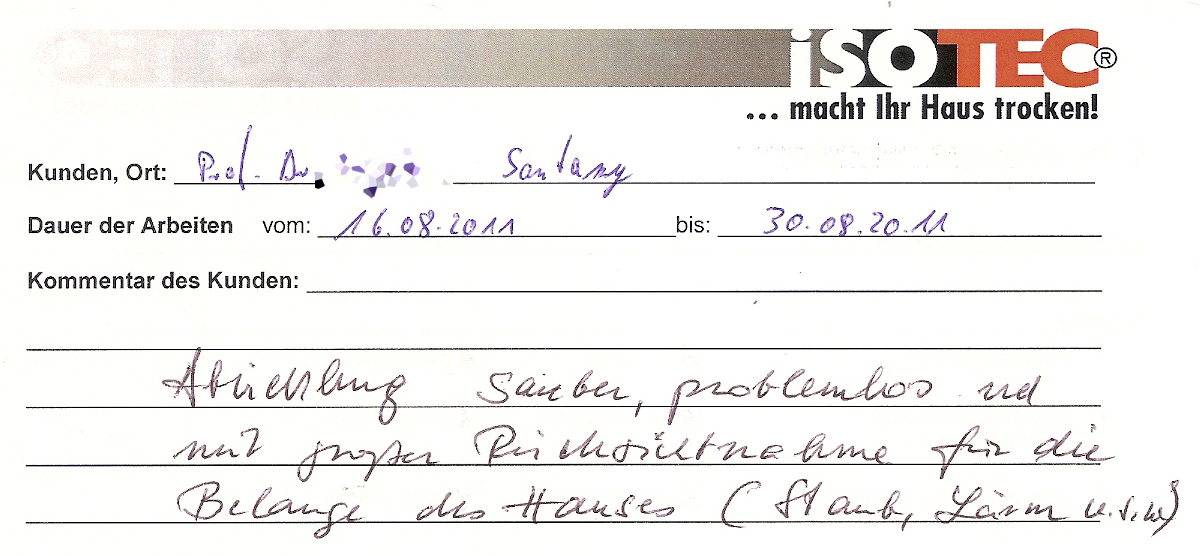 iSOTEC®
... macht Ihr Haus trocken!
Kunden, Ort: Prof. Dr. Santany
Dauer der Arbeiten vom: 16.08.2011 bis: 30.08.2011
Kommentar des Kunden:
Abwicklung sauber, problemlos und
mit großer Rücksichtnahme für die
Belange des Hauses (Staub, Lärm u.s.w)